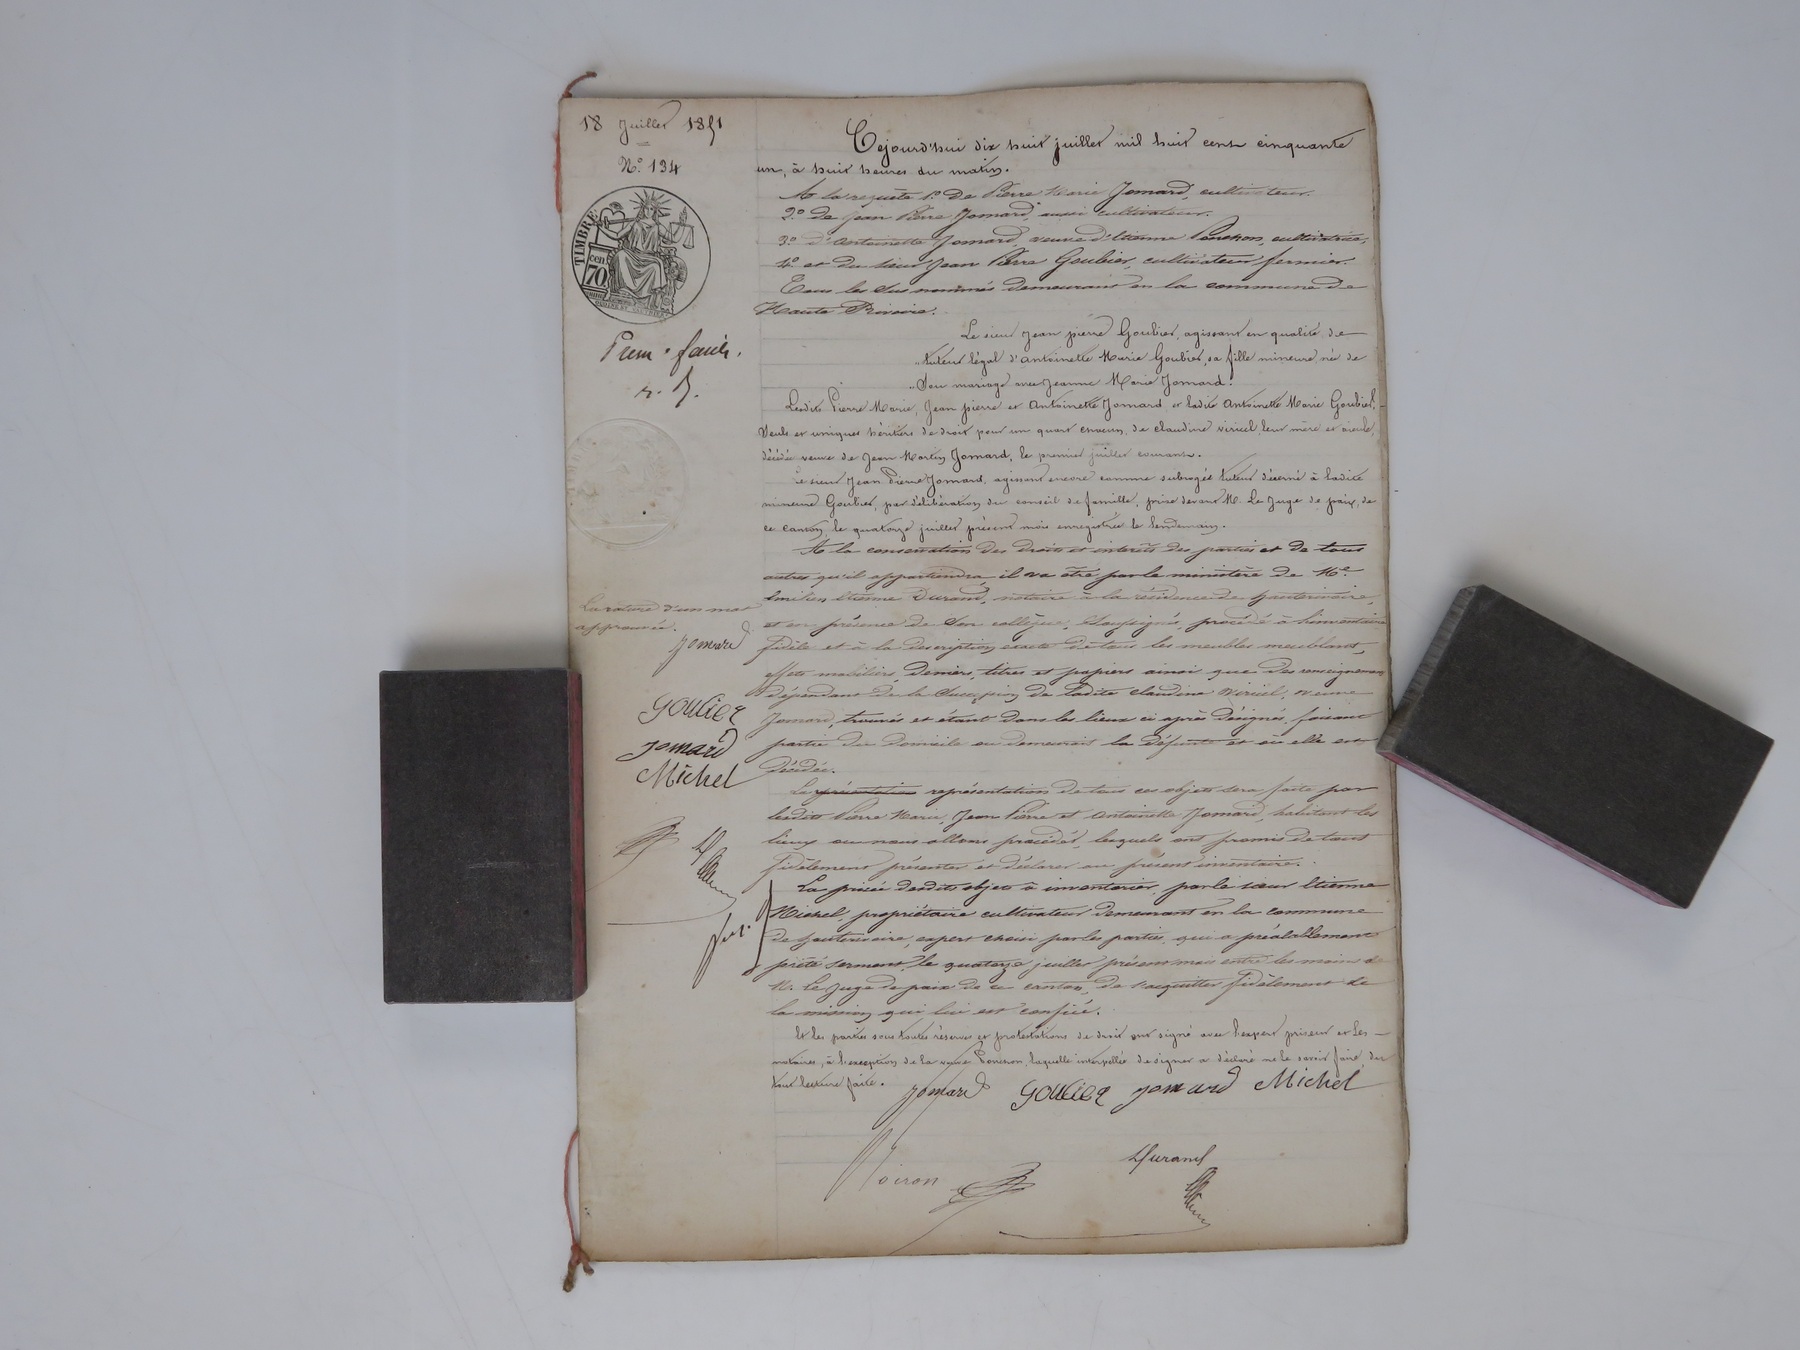 18 Juillet 1851
N.º 134
TIMBRE
70
cen
Cejourd'hui dix huit juillet mil huit cent cinquante
un, à huit heures du matin.
A la requête 1.º De Pierre Marie Jomard, cultivateur.
2.º de Jean Pierre Jomard, aussi cultivateur.
3.º d'Antoinette Jomard, veuve d'Etienne Ponchon, cultivatrice,
4.º et du sieur Jean Pierre Goubier, cultivateur fermier.
Tous les sus nommés demeurant en la commune de
Haute Rivoire.
Le sieur Jean pierre Goubier, agissant en qualité de
tuteur légal d'Antoinette Marie Goubier, sa fille mineure née de
Son mariage avec Jeanne Marie Jomard.
Lesdits Pierre Marie, Jean pierre et Antoinette Jomard et ladite Antoinette Marie Goubier,
Seuls et uniques héritiers de droit pour un quart chacun, de Claudine Viricel, leur mère et aïeule,
décédée veuve de Jean Martin Jomard, le premier juillet courant.
Le sieur Jean Pierre Jomard, agissant encore comme subrogé tuteur décerné à ladite
mineure Goubier, par délibération du conseil de famille, prise devant M. Le Juge de paix, de
ce canton, le quatorze juillet présent mois enregistrée le lendemain.
A la conservation des droits et intérêts des parties et de tous
autres qu'il appartiendra, il va être par le ministère de M.e
Emilien Etienne Durand, notaire à la résidence de hauterivoire,
et en présence de Son collègue, Soussignés, procédé à l'inventaire
fidèle et à la description exacte de tous les meubles meublants,
effets mobiliers, deniers, titres et papiers ainsi que des renseignements
dépendant de la Succession de ladite Claudine Viricel, veuve
Jomard, trouvés et étant dans les lieux ci après désignés, faisant
partie du Domicile ou demeurait la défunte et où elle est
décédée.
La représentation de tous ces objets sera faite par
lesdits Pierre Marie, Jean Pierre et Antoinette Jomard, habitant les
lieux ou nous allons procéder, lesquels ont promis de tout
fidèlement présenter et déclarer au présent inventaire.
La prisée desdits objets à inventorier, par le sieur Etienne
Michel, propriétaire cultivateur demeurant en la commune
de hauterivoire, expert choisi par les parties, qui a préalablement
prêté serment, le quatorze juillet présent mois entre les mains de
M. Le Juge de paix de ce canton, de s'acquitter fidèlement de
la mission qui lui est confiée.
Et les parties sous toutes réserves et protestations de droit ont signé avec l'expert priseur et les
notaires, à l'exception de la veuve Ponchon, laquelle interpellée de signer a déclaré ne le savoir faire, du
tout lecture faite.
Jomard Goubier Jomard Michel
Noiron
Durand
La rature d'un mot
approuvée.
Jomard
Goubier
Jomard
Michel